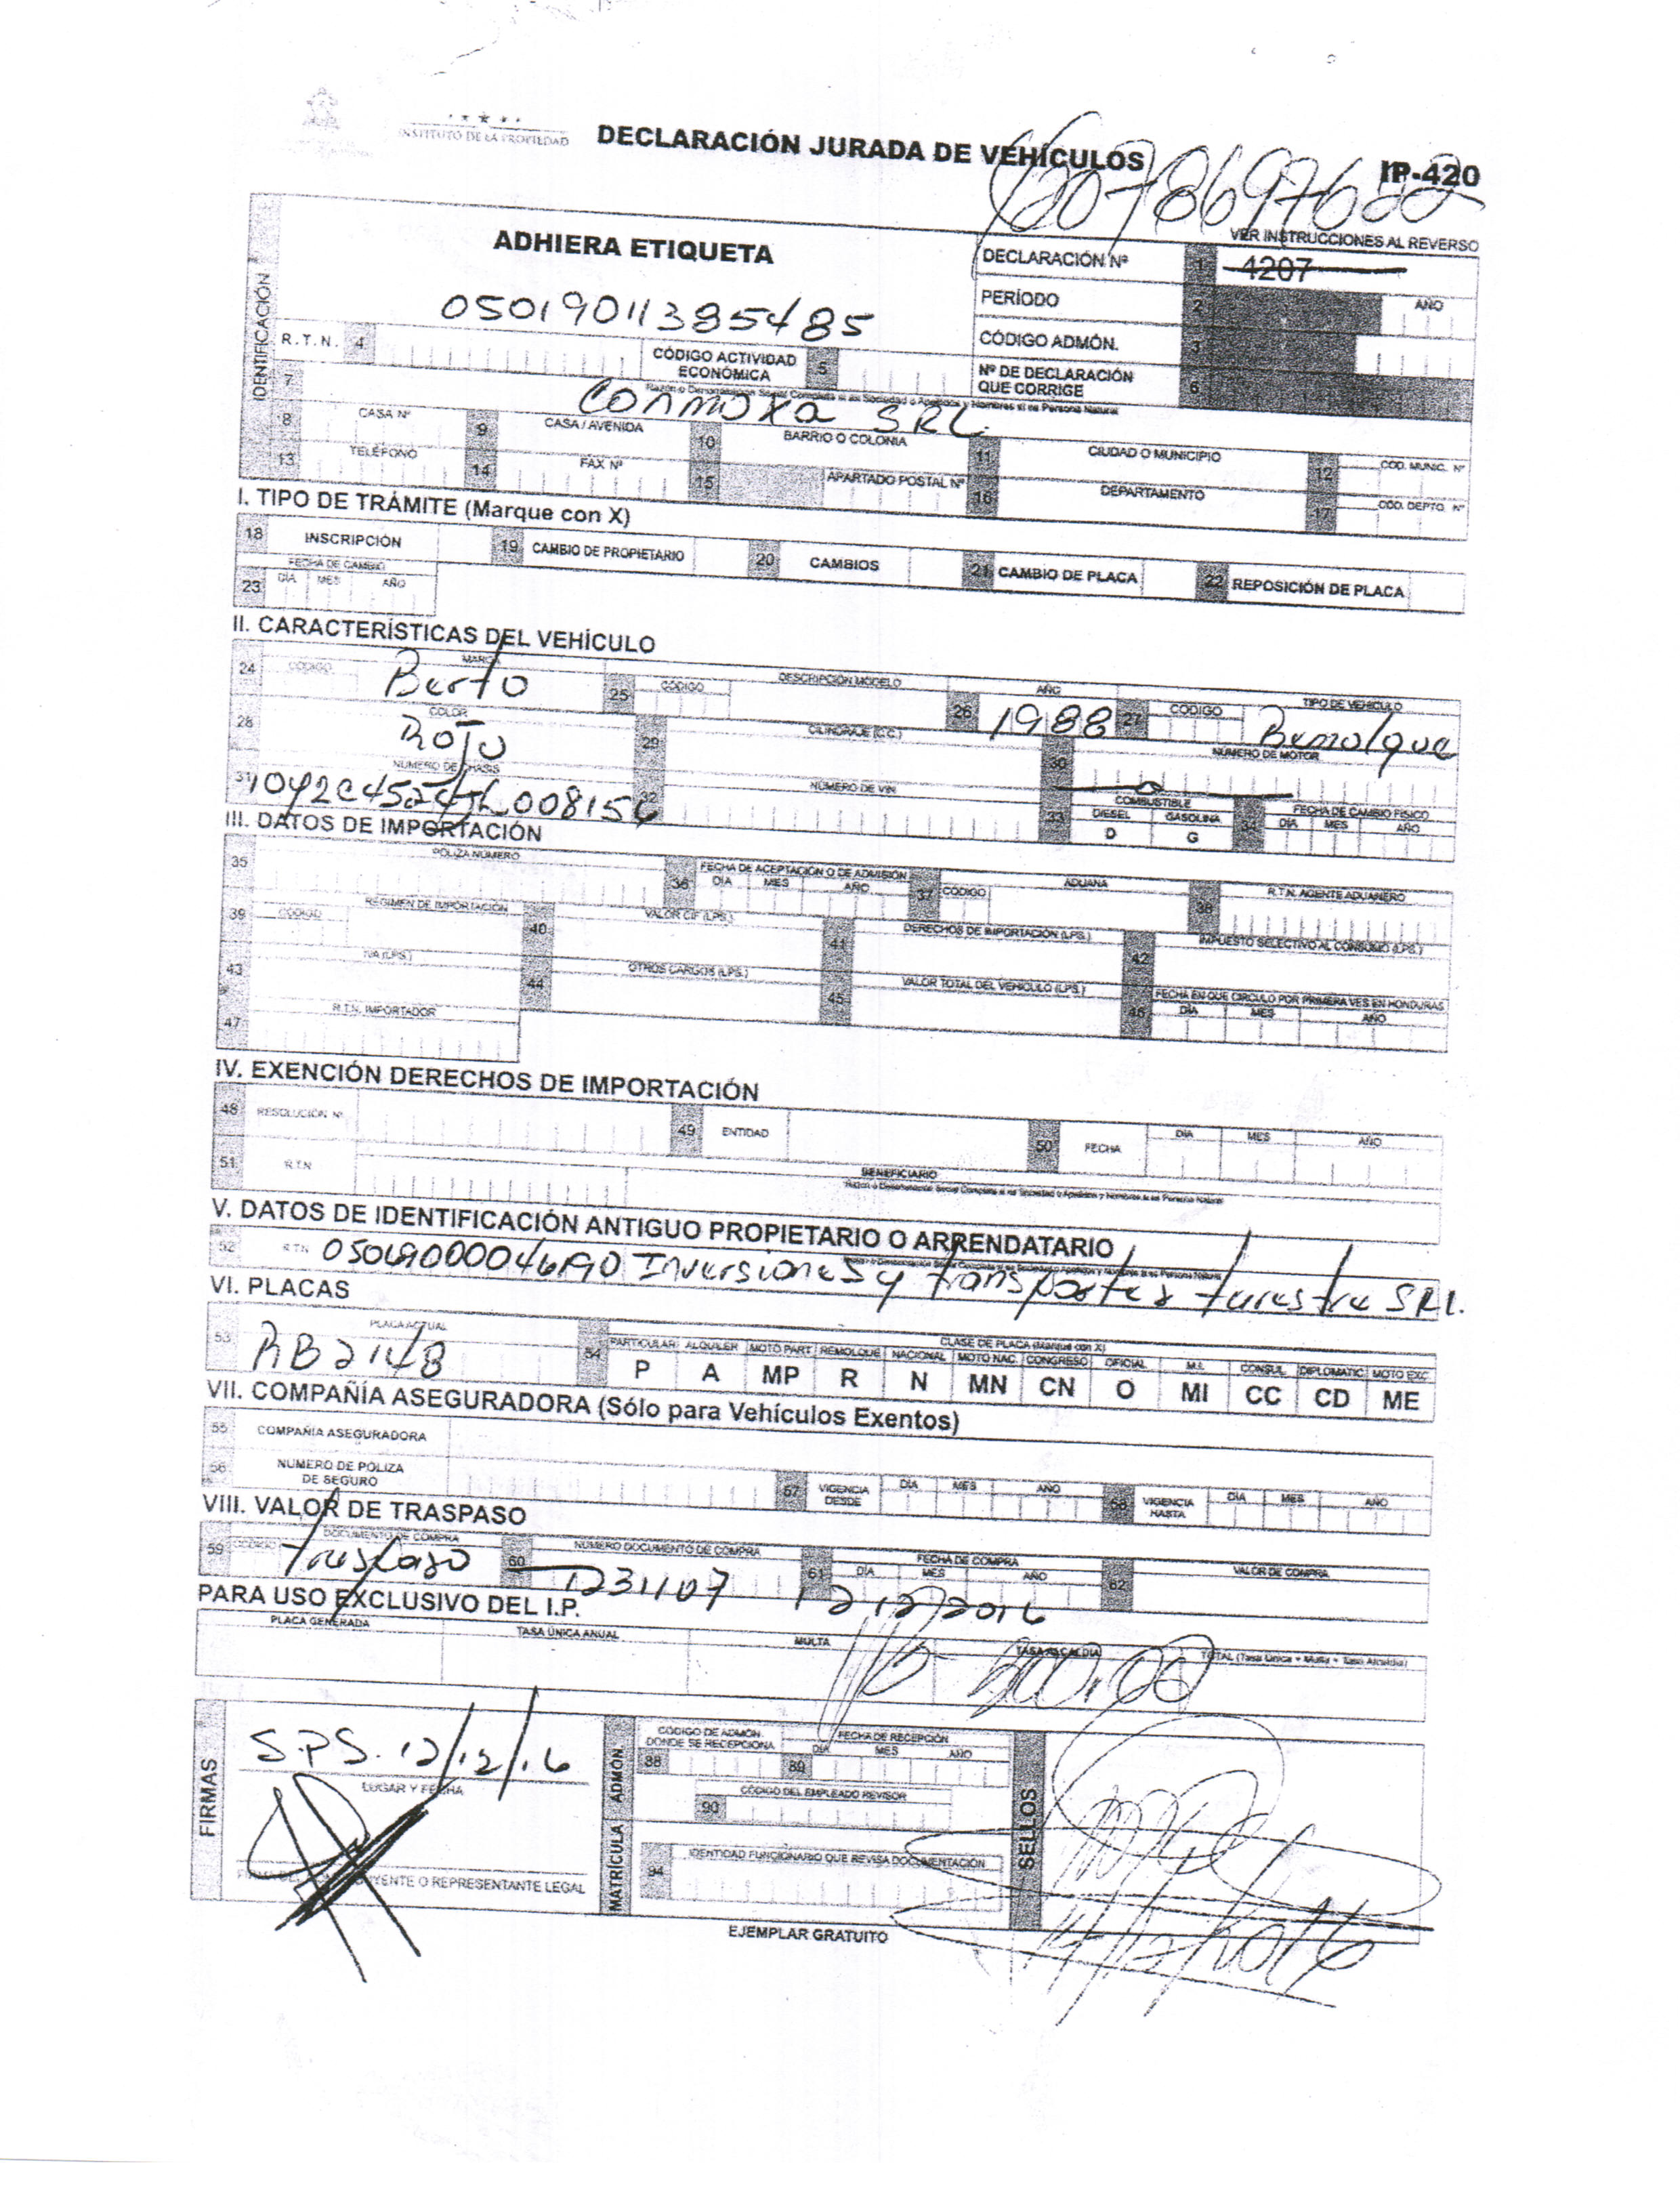 INSTITUTO DE LA PROPIEDAD
DECLARACIÓN JURADA DE VEHÍCULOS
IP-420
VER INSTRUCCIONES AL REVERSO
IDENTIFICACIÓN
ADHIERA ETIQUETA
DECLARACIÓN Nº 1 4207
PERÍODO 2 AÑO
CÓDIGO ADMÓN. 3
Nº DE DECLARACIÓN QUE CORRIGE 6
R.T.N. 4
CÓDIGO ACTIVIDAD ECONÓMICA 5
7 Razón o Denominación Social Completa si es Sociedad o Apellidos y Nombres si es Persona Natural
SRL
8 CASA Nº 9 CASA / AVENIDA 10 BARRIO O COLONIA 11 CIUDAD O MUNICIPIO 12 COD. MUNIC. Nº
13 TELÉFONO 14 FAX Nº 15 APARTADO POSTAL Nº 16 DEPARTAMENTO 17 COD. DEPTO. Nº
I. TIPO DE TRÁMITE (Marque con X)
18 INSCRIPCIÓN 19 CAMBIO DE PROPIETARIO 20 CAMBIOS 21 CAMBIO DE PLACA 22 REPOSICIÓN DE PLACA
23 FECHA DE CAMBIO DÍA MES AÑO
II. CARACTERÍSTICAS DEL VEHÍCULO
24 CÓDIGO MARCA 25 CÓDIGO DESCRIPCIÓN MODELO 26 AÑO 1988 27 CÓDIGO TIPO DE VEHICULO
28 COLOR Rojo 29 CILINDRAJE (C.C.) 30 NÚMERO DE MOTOR
31 NÚMERO DE CHASIS 32 NÚMERO DE VIN 33 COMBUSTIBLE DIESEL D GASOLINA G 34 FECHA DE CAMBIO FÍSICO DÍA MES AÑO
III. DATOS DE IMPORTACIÓN
35 POLIZA NÚMERO 36 FECHA DE ACEPTACIÓN O DE ADMISIÓN DÍA MES AÑO 37 CÓDIGO ADUANA 38 R.T.N. AGENTE ADUANERO
39 CÓDIGO RÉGIMEN DE IMPORTACIÓN 40 VALOR CIF (LPS.) 41 DERECHOS DE IMPORTACIÓN (LPS.) 42 IMPUESTO SELECTIVO AL CONSUMO (LPS.)
43 IVA (LPS.) 44 OTROS CARGOS (LPS.) 45 VALOR TOTAL DEL VEHÍCULO (LPS.) 46 FECHA EN QUE CIRCULO POR PRIMERA VES EN HONDURAS DÍA MES AÑO
47 R.T.N. IMPORTADOR
IV. EXENCIÓN DERECHOS DE IMPORTACIÓN
48 RESOLUCIÓN Nº 49 ENTIDAD 50 FECHA DÍA MES AÑO
51 R.T.N BENEFICIARIO
Razón o Denominación Social Completa si es Sociedad o Apellidos y Nombres si es Persona Natural
V. DATOS DE IDENTIFICACIÓN ANTIGUO PROPIETARIO O ARRENDATARIO
52 RTN Inversiones y transportes SRL.
VI. PLACAS
53 PLACA ACTUAL 54 CLASE DE PLACA (Marque con X)
PARTICULAR ALQUILER MOTO PART REMOLQUE NACIONAL MOTO NAC. CONGRESO OFICIAL M.I. CONSUL DIPLOMATIC MOTO EXC.
P A MP R N MN CN O MI CC CD ME
VII. COMPAÑÍA ASEGURADORA (Sólo para Vehículos Exentos)
55 COMPAÑÍA ASEGURADORA
56 NUMERO DE POLIZA DE SEGURO 57 VIGENCIA DESDE DÍA MES AÑO 58 VIGENCIA HASTA DIA MES AÑO
VIII. VALOR DE TRASPASO
59 CODIGO DOCUMENTO DE COMPRA 60 NÚMERO DOCUMENTO DE COMPRA 61 FECHA DE COMPRA DÍA MES AÑO 62 VALOR DE COMPRA
1231107 12/12/2016
PARA USO EXCLUSIVO DEL I.P.
PLACA GENERADA TASA ÚNICA ANUAL MULTA TASA ALCALDÍA TOTAL (Tasa Única + Multa + Tasa Alcaldía)
FIRMAS
S.P.S. 12/12/16
LUGAR Y FECHA
CONTRIBUYENTE O REPRESENTANTE LEGAL
MATRÍCULA ADMÓN
88 CÓDIGO DE ADMÓN. DONDE SE RECEPCIONA 89 FECHA DE RECEPCIÓN DÍA MES AÑO
90 CÓDIGO DEL EMPLEADO REVISOR
94 IDENTIDAD FUNCIONARIO QUE REVISA DOCUMENTACIÓN
SELLOS
14/12/2016
EJEMPLAR GRATUITO